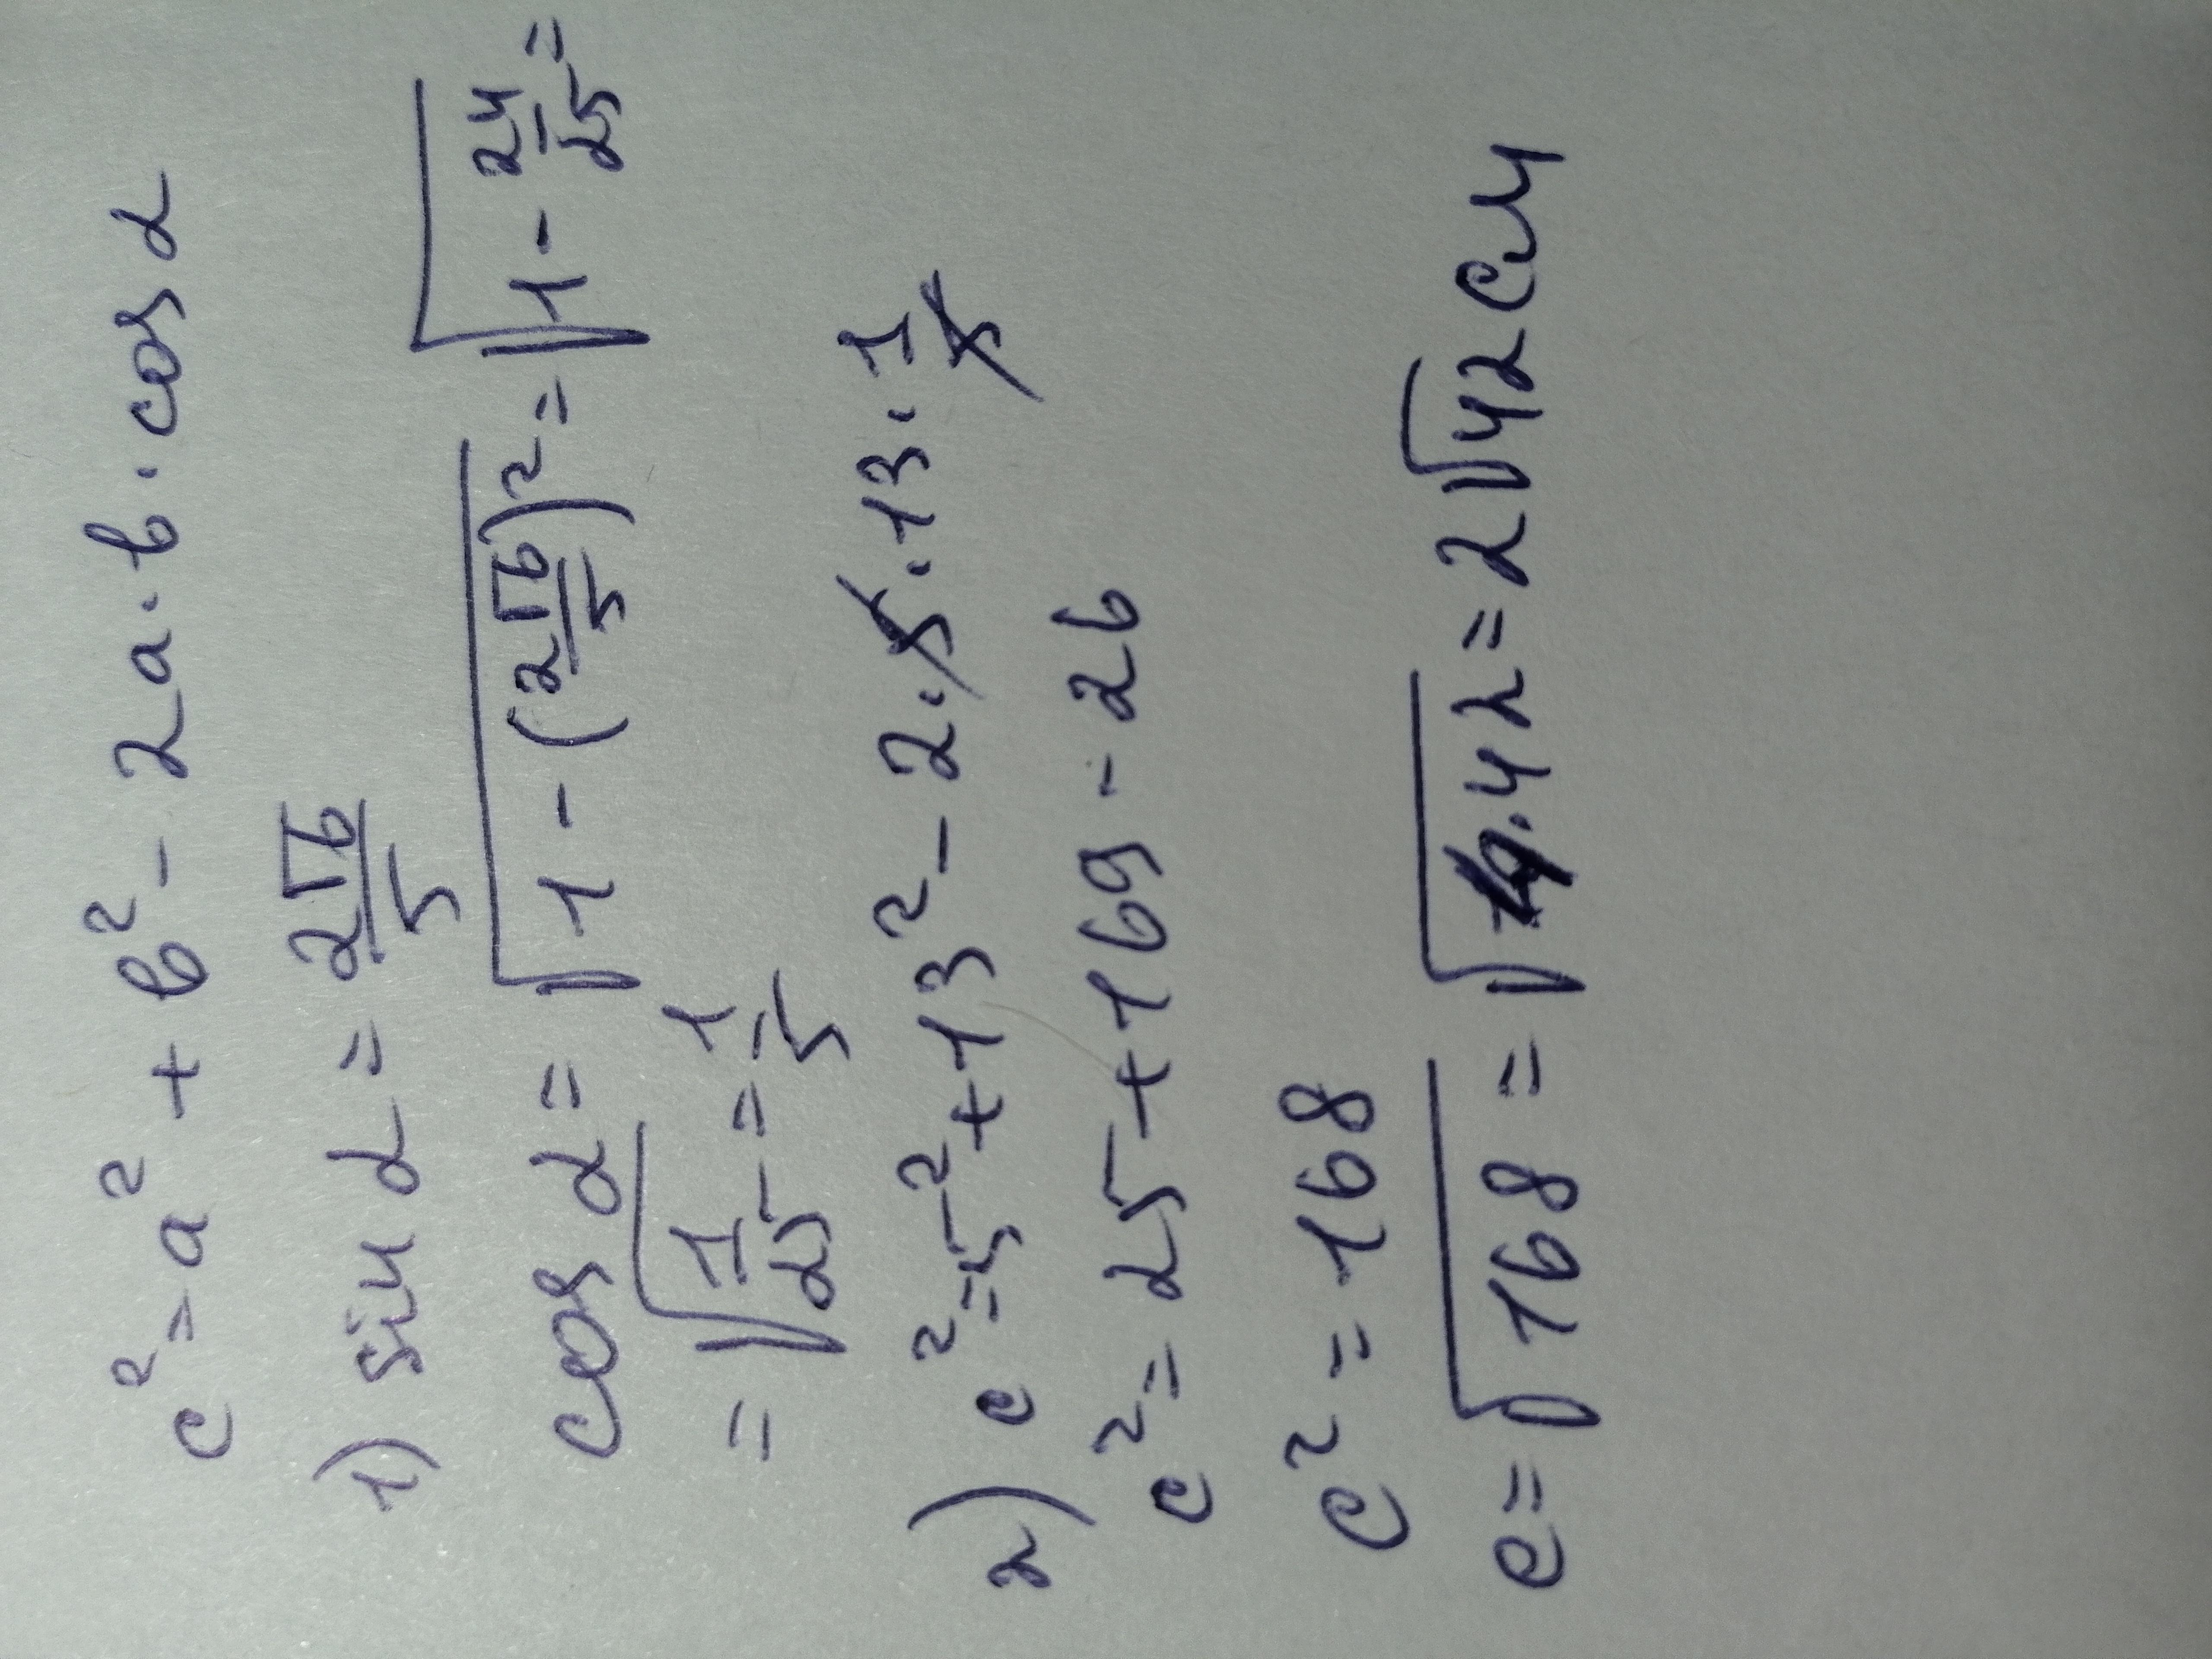 c² = a² + b² - 2a·b·cos α
1) sin α = 2√6/5
cos α = √(1 - (2√6/5)²) = √(1 - 24/25) =
= √(1/25) = 1/5
2) c² = 5² + 13² - 2·5·13·1/5
c² = 25 + 169 - 26
c² = 168
c = √168 = √(4·42) = 2√42 см